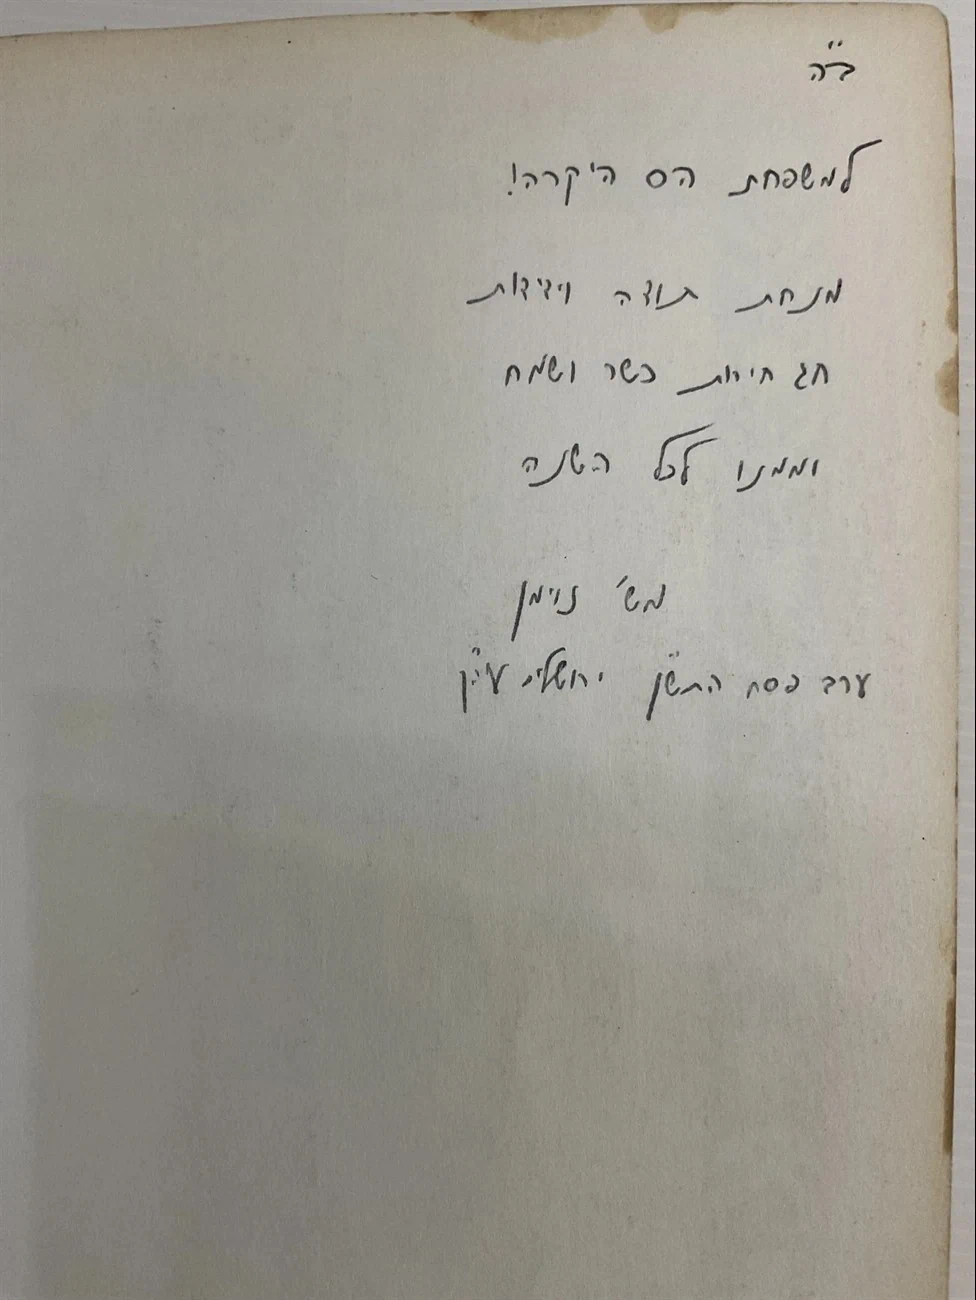 ב"ה
למשפחת הס היקרה!
מנחת תודה וידידות
חג חירות כשר ושמח
וממנו לכל השנה
מש' נוימן
ערב פסח התש"ן ירושלים עיה"ק